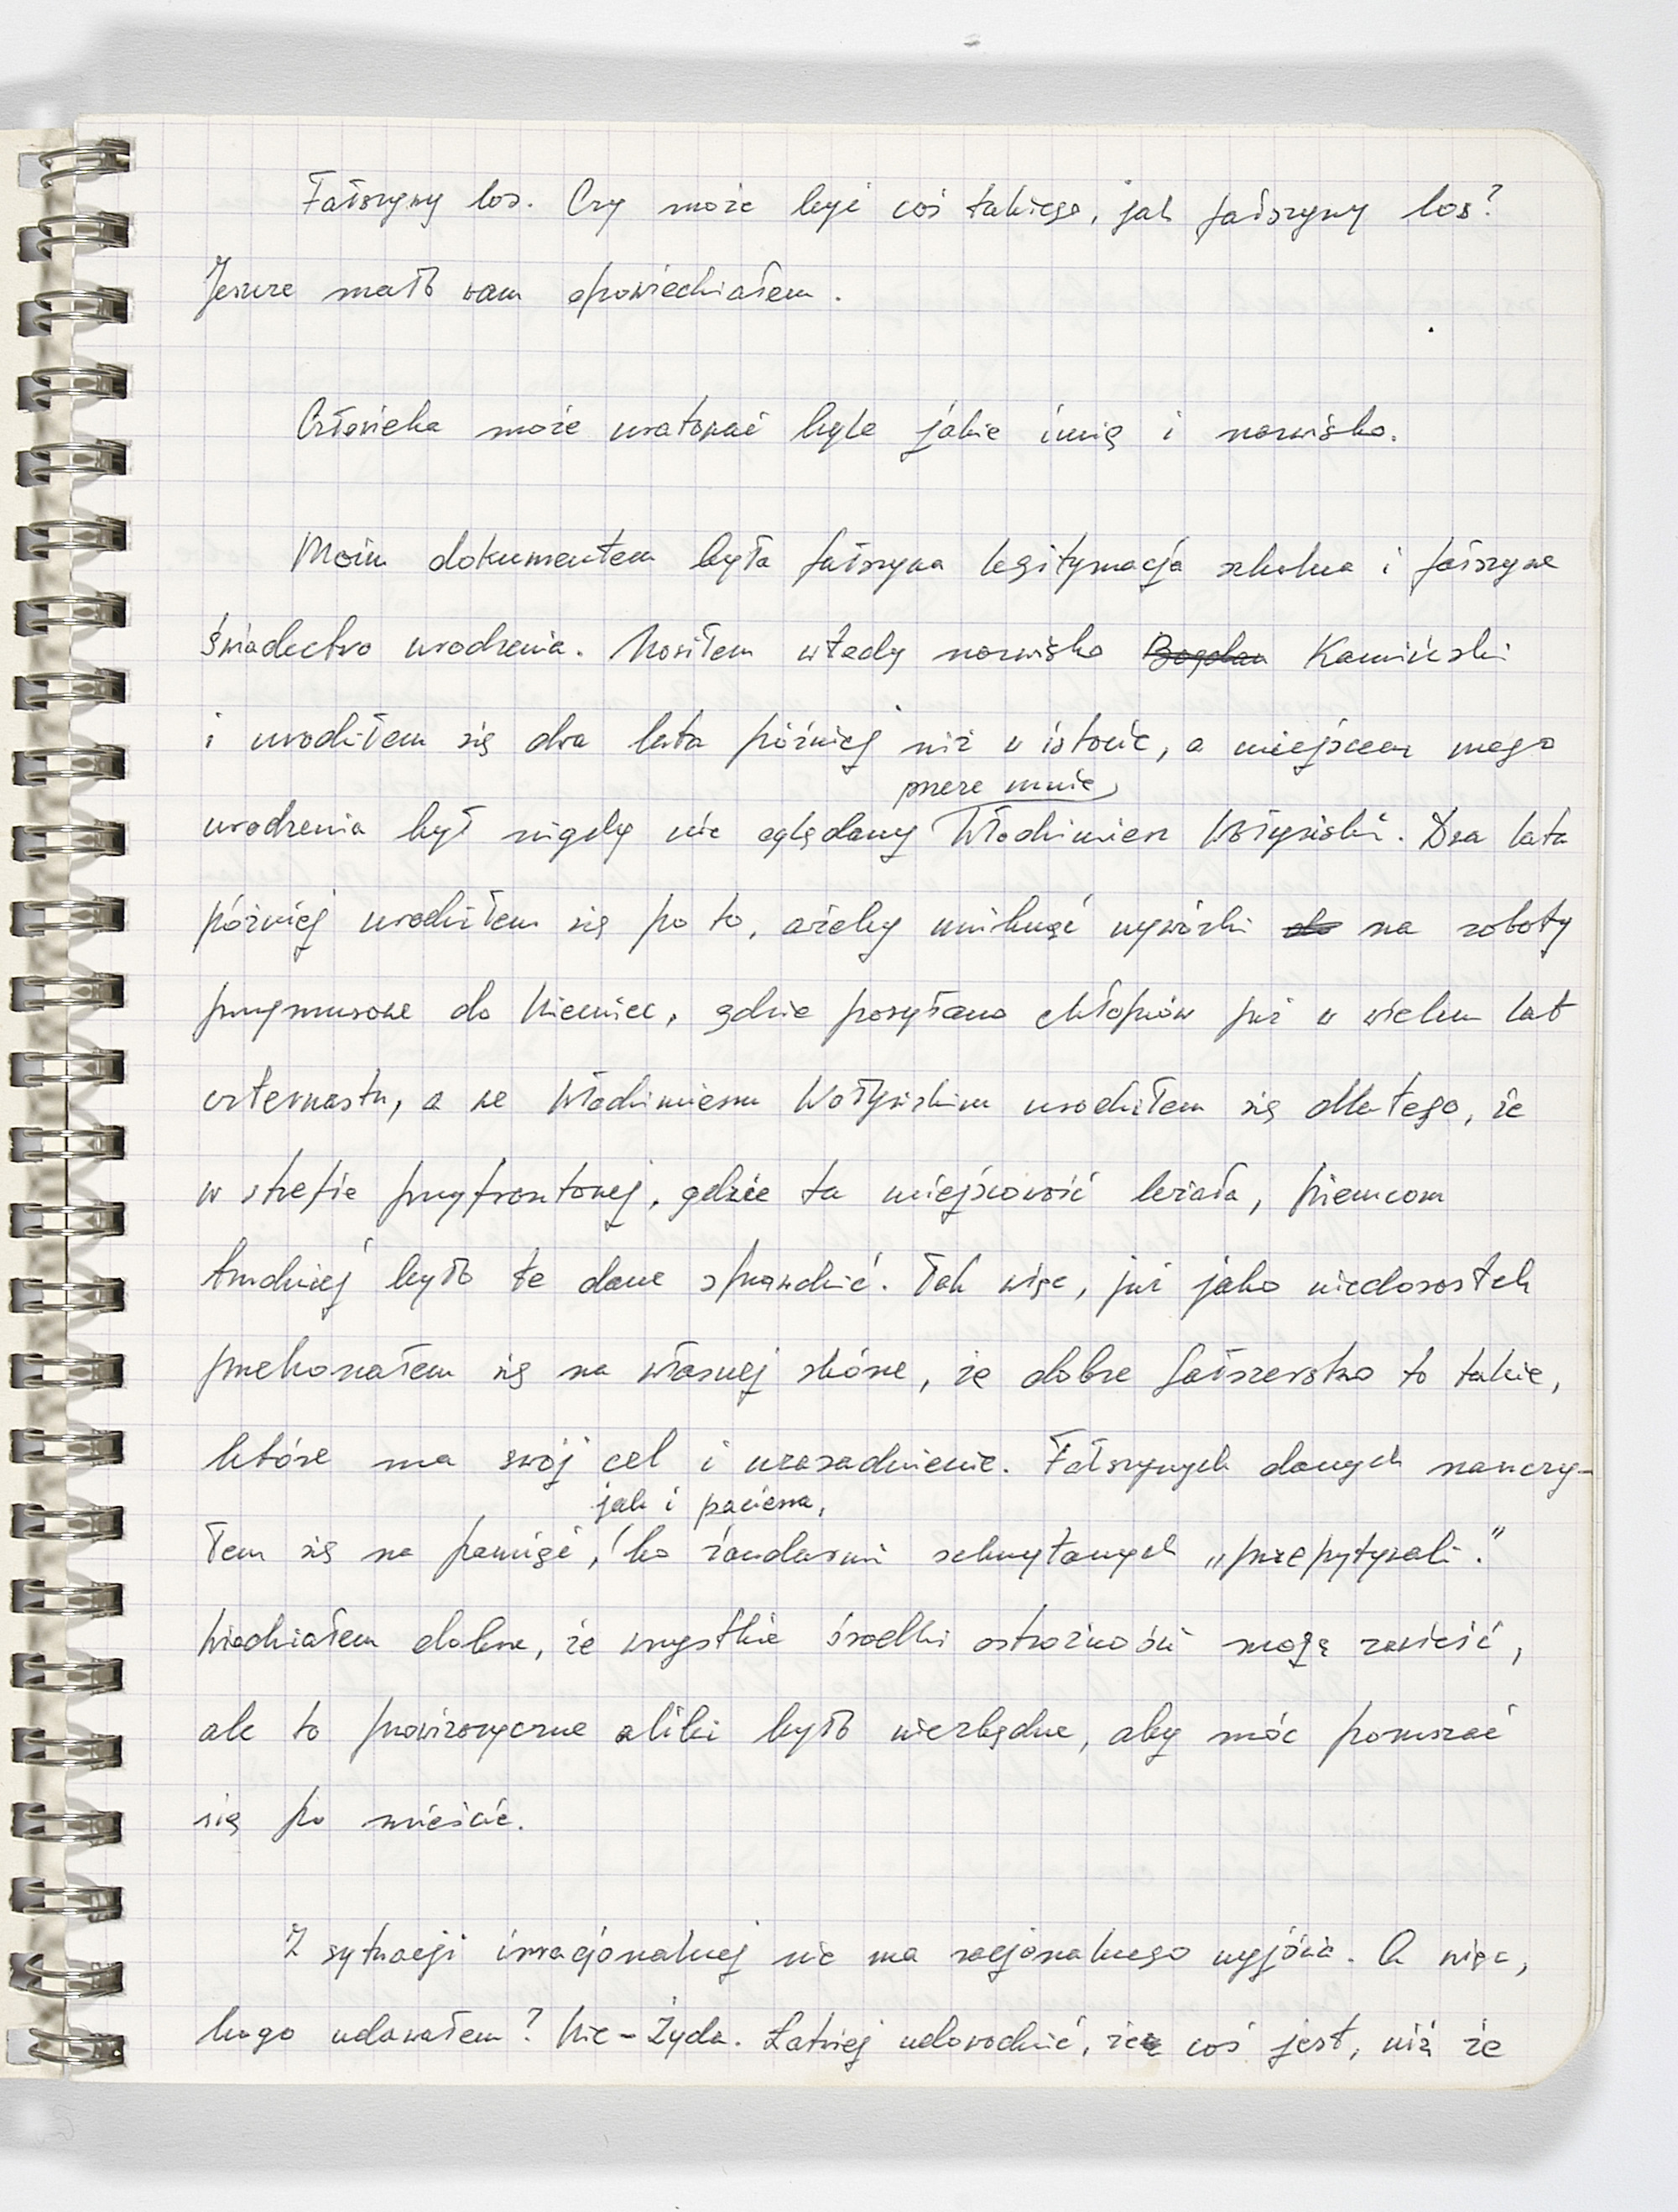 Fałszywy los. Czy może być coś takiego, jak fałszywy los?
Jeszcze mało wam opowiedziałem.
Człowieka może uratować byle jakie imię i nazwisko.
Moim dokumentem była fałszywa legitymacja szkolna i fałszywe
świadectwo urodzenia. Nosiłem wtedy nazwisko Bogdan Kamiński
i urodziłem się dwa lata później niż w istocie, a miejscem mego
przeze mnie
urodzenia był nigdy nie oglądany Włodzimierz Wołyński. Dwa lata
później urodziłem się po to, ażeby uniknąć wywózki do na roboty
przymusowe do Niemiec, gdzie posyłano chłopców już w wieku lat
czternastu, a we Włodzimierzu Wołyńskim urodziłem się dlatego, że
w strefie przyfrontowej, gdzie ta miejscowość leżała, Niemcom
trudniej było te dane sprawdzić. Tak więc, już jako niedorostek
przekonałem się na własnej skórze, że dobre fałszerstwo to takie,
które ma swój cel i uzasadnienie. Fałszywych danych nauczy-
jak i pacierza,
łem się na pamięć, bo żandarmi schwytanych „przepytywali."
Wiedziałem dobrze, że wszystkie środki ostrożności mogą zawieść,
ale to prowizoryczne alibi było niezbędne, aby móc poruszać
się po mieście.
Z sytuacji irracjonalnej nie ma racjonalnego wyjścia. A więc,
kogo udawałem? Nie-Żyda. Łatwiej udowodnić, że coś jest, niż że